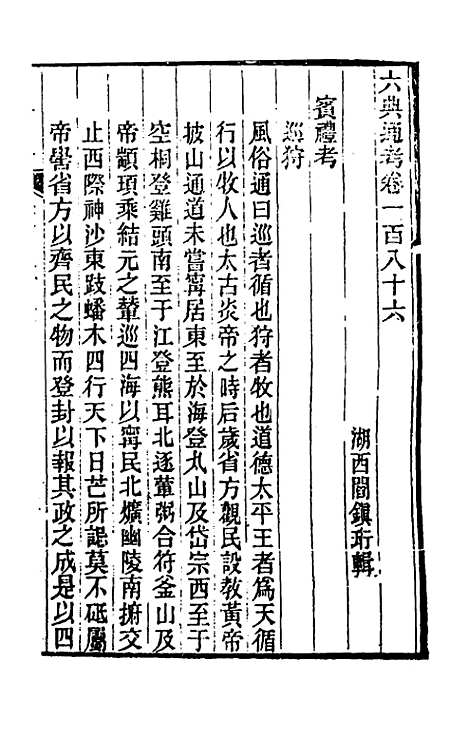 六典通考卷一百八十六
湖西閻鎮珩輯
賓禮考
巡狩
風俗通曰巡者循也狩者牧也道德太平王者為天循
行以牧人也太古炎帝之時后歲省方觀民設教黃帝
披山通道未嘗寧居東至於海登丸山及岱宗西至于
空桐登雞頭南至于江登熊耳北逐葷粥合符釜山及
帝顓頊乘結元之輦巡四海以寧民北爌幽陵南捬交
止西際神沙東跂蟠木四行天下日芒所記莫不砥屬
帝嚳省方以齊民之物而登封以報其政之成是以四